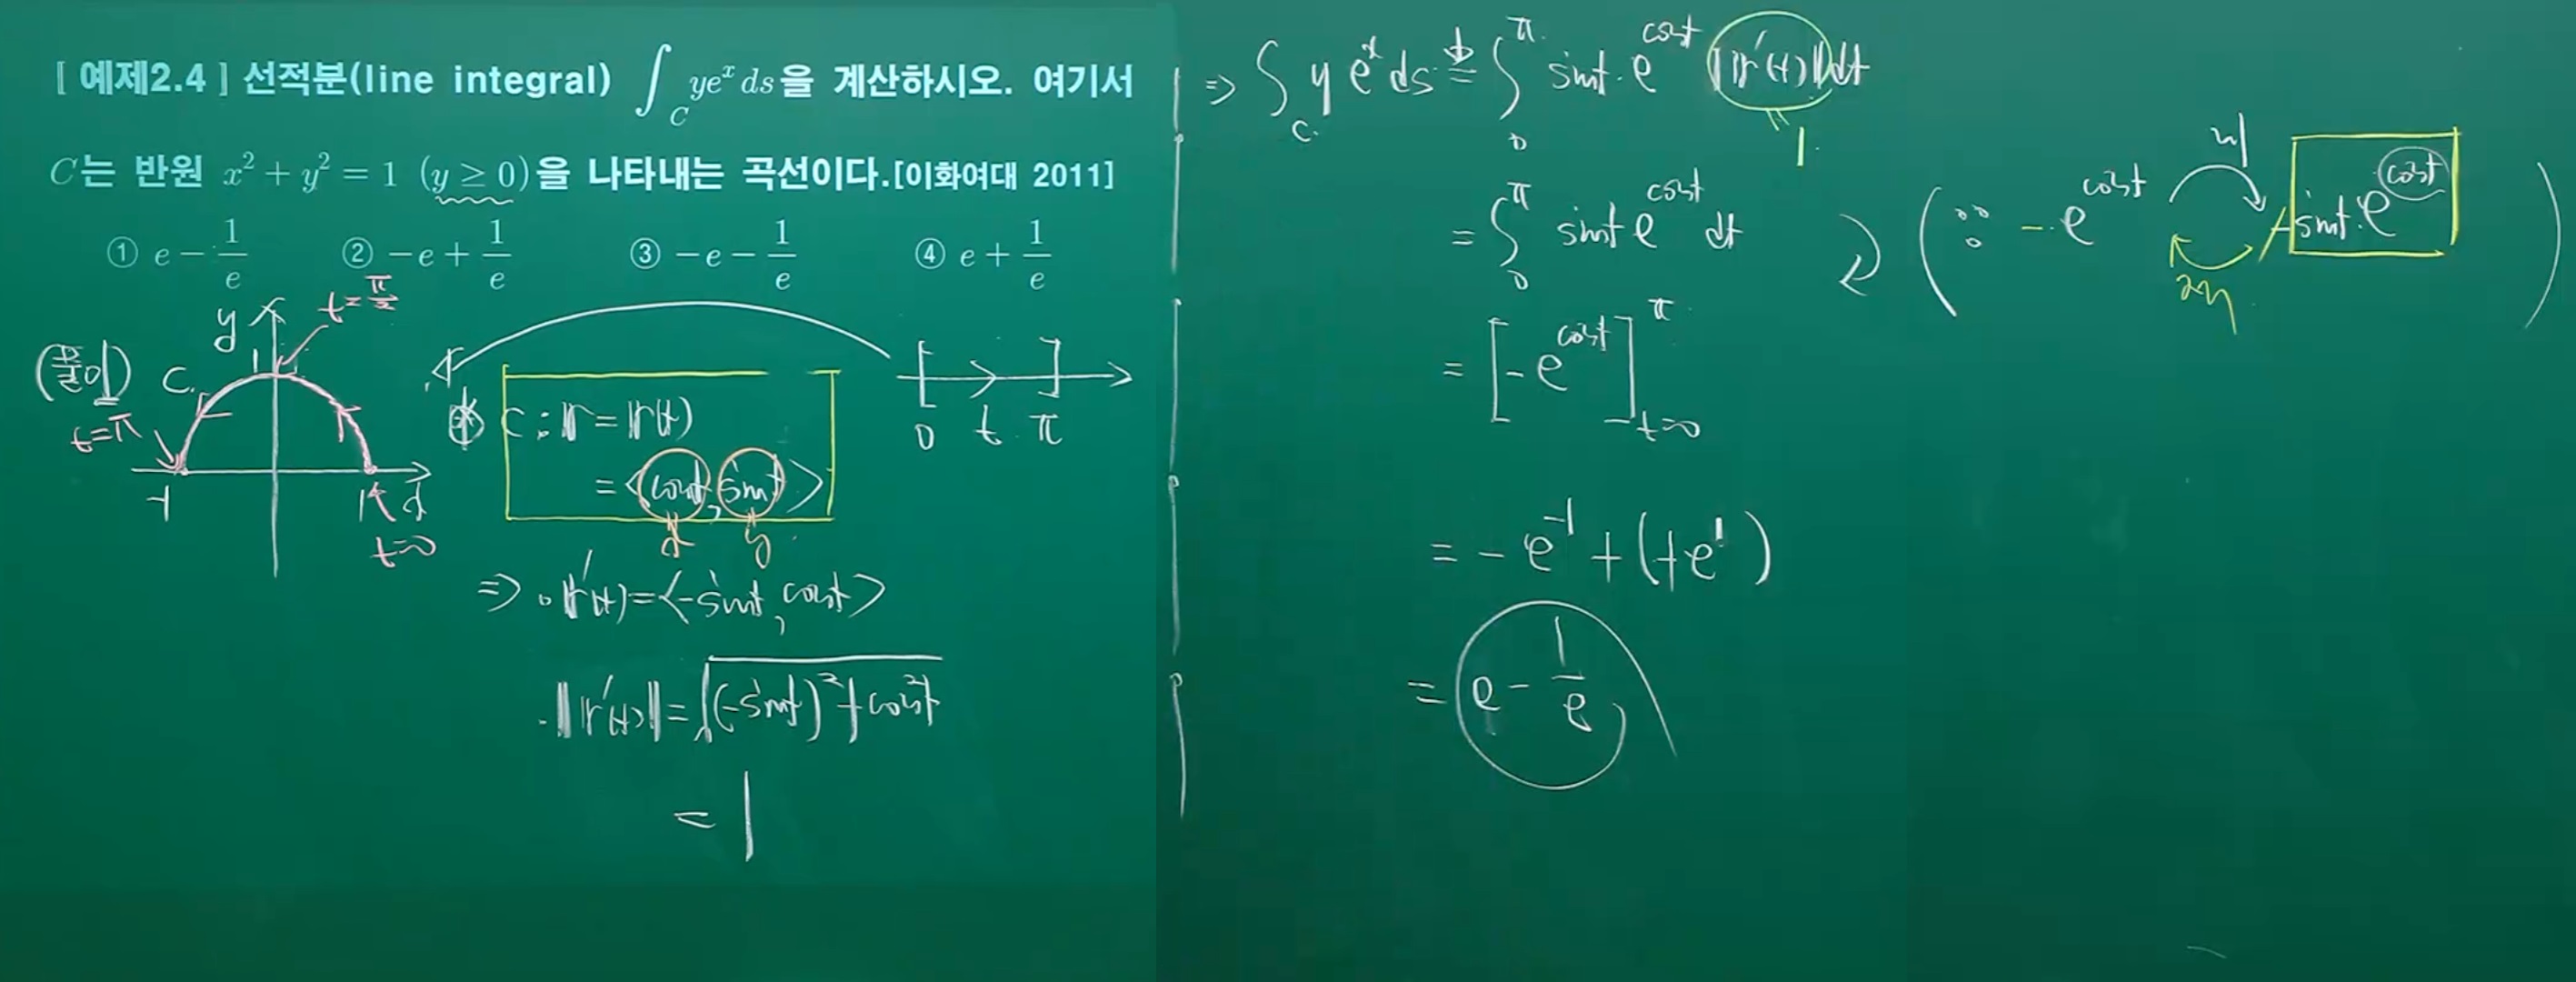 [ 예제2.4 ] 선적분(line integral) ∫_C ye^x ds을 계산하시오. 여기서
C는 반원 x² + y² = 1 (y ≥ 0)을 나타내는 곡선이다.[이화여대 2011]
① e − 1/e ② −e + 1/e ③ −e − 1/e ④ e + 1/e
(풀이)
y
1
t=π/2
C.
t=π
-1
1
x
t=0
0 t π
C : r = r(t)
= <cost, sint>
x y
⇒ · r'(t) = <-sint, cost>
· ‖r'(t)‖ = √((-sint)² + cos²t)
= 1
⇒ ∫_C y e^x ds = ∫_0^π sint · e^{cost} ‖r'(t)‖ dt
1
= ∫_0^π sint e^{cost} dt
(∵ -e^{cost} 미 -sint · e^{cost})
적
= [-e^{cost}]_{t=0}^π
= -e^{-1} + (+e^1)
= e - 1/e